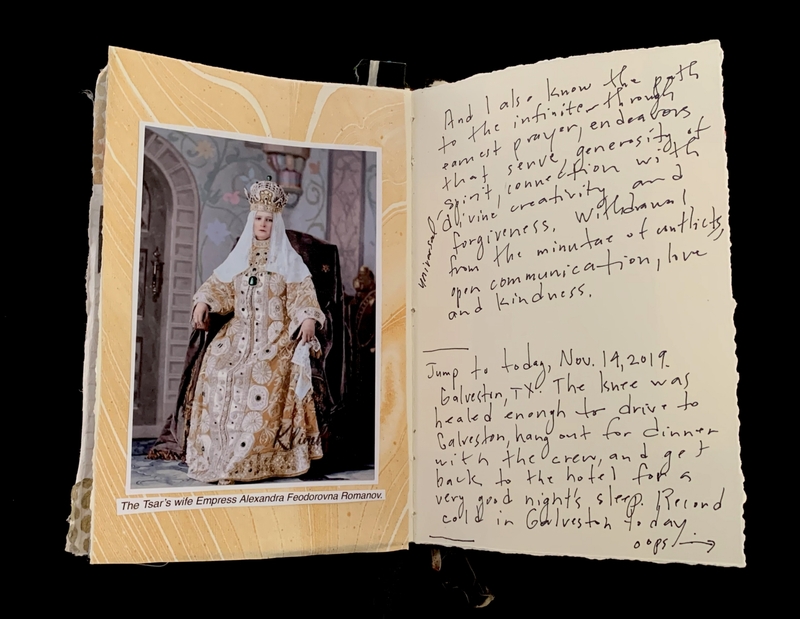 Klimbim
The Tsar's wife Empress Alexandra Feodorovna Romanov.
And I also know the path
to the infinite through
earnest prayer, endeavors
that serve generosity of
spirit, connection with
divine creativity and
universal forgiveness. Withdrawal
from the minutae of conflicts,
open communication, love
and kindness.
Jump to today, Nov. 14, 2019.
Galveston, TX. The knee was
healed enough to drive to
Galveston, hang out for dinner
with the crew, and get
back to the hotel for a
very good night's sleep. Record
cold in Galveston today.
oops!